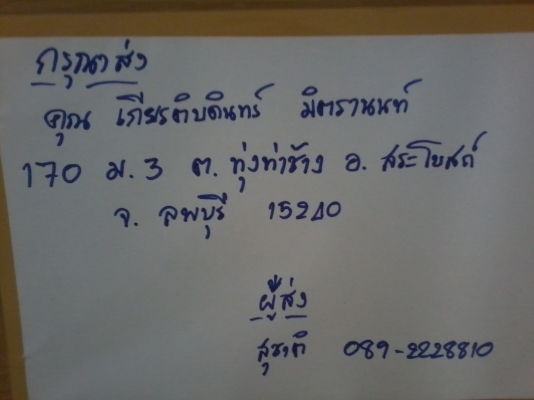 กรุณาส่ง
คุณ เกียรติบดินทร์ มิตรานนท์
170 ม. 3 ต. ทุ่งท่าช้าง อ. สระโบสถ์
จ. ลพบุรี 15240
ผู้ส่ง
สุชาติ 089-2228810